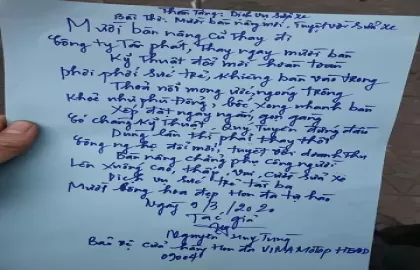 Thân Tặng: Dịch vụ sửa xe
Bài Thơ: Mười bàn nâng mới, Tuyệt vời sửa xe
Mười bàn nâng cũ thay đi
Công ty Tân phát, thay ngay mười bàn
Kỹ thuật đổi mới hoàn toàn
phơi phới sức trẻ, khiêng bàn vào trong
Thoả nỗi mong ước, ngóng trông
Khoẻ như phù Đổng, bốc xong nhanh bàn
Xếp đặt ngay ngắn, gọn gàng
Có chàng kỹ Thuật, Quy Tuyên đứng đầu
Dùng lâu thì phải thay thôi
Công nghệ đổi mới, tuyệt vời doanh thu
Bàn nâng chẳng phụ công người
Lên xuống cao, thấp, vui cười sửa xe
Dịch vụ sức trẻ tài ba
Mười bông hoa đẹp Honda tự hào
Ngày 9/3/2020
Tác giả
Nguyễn Huy Trung
Bảo vệ cửa hàng Honda VIMA Motor HEAD
09004